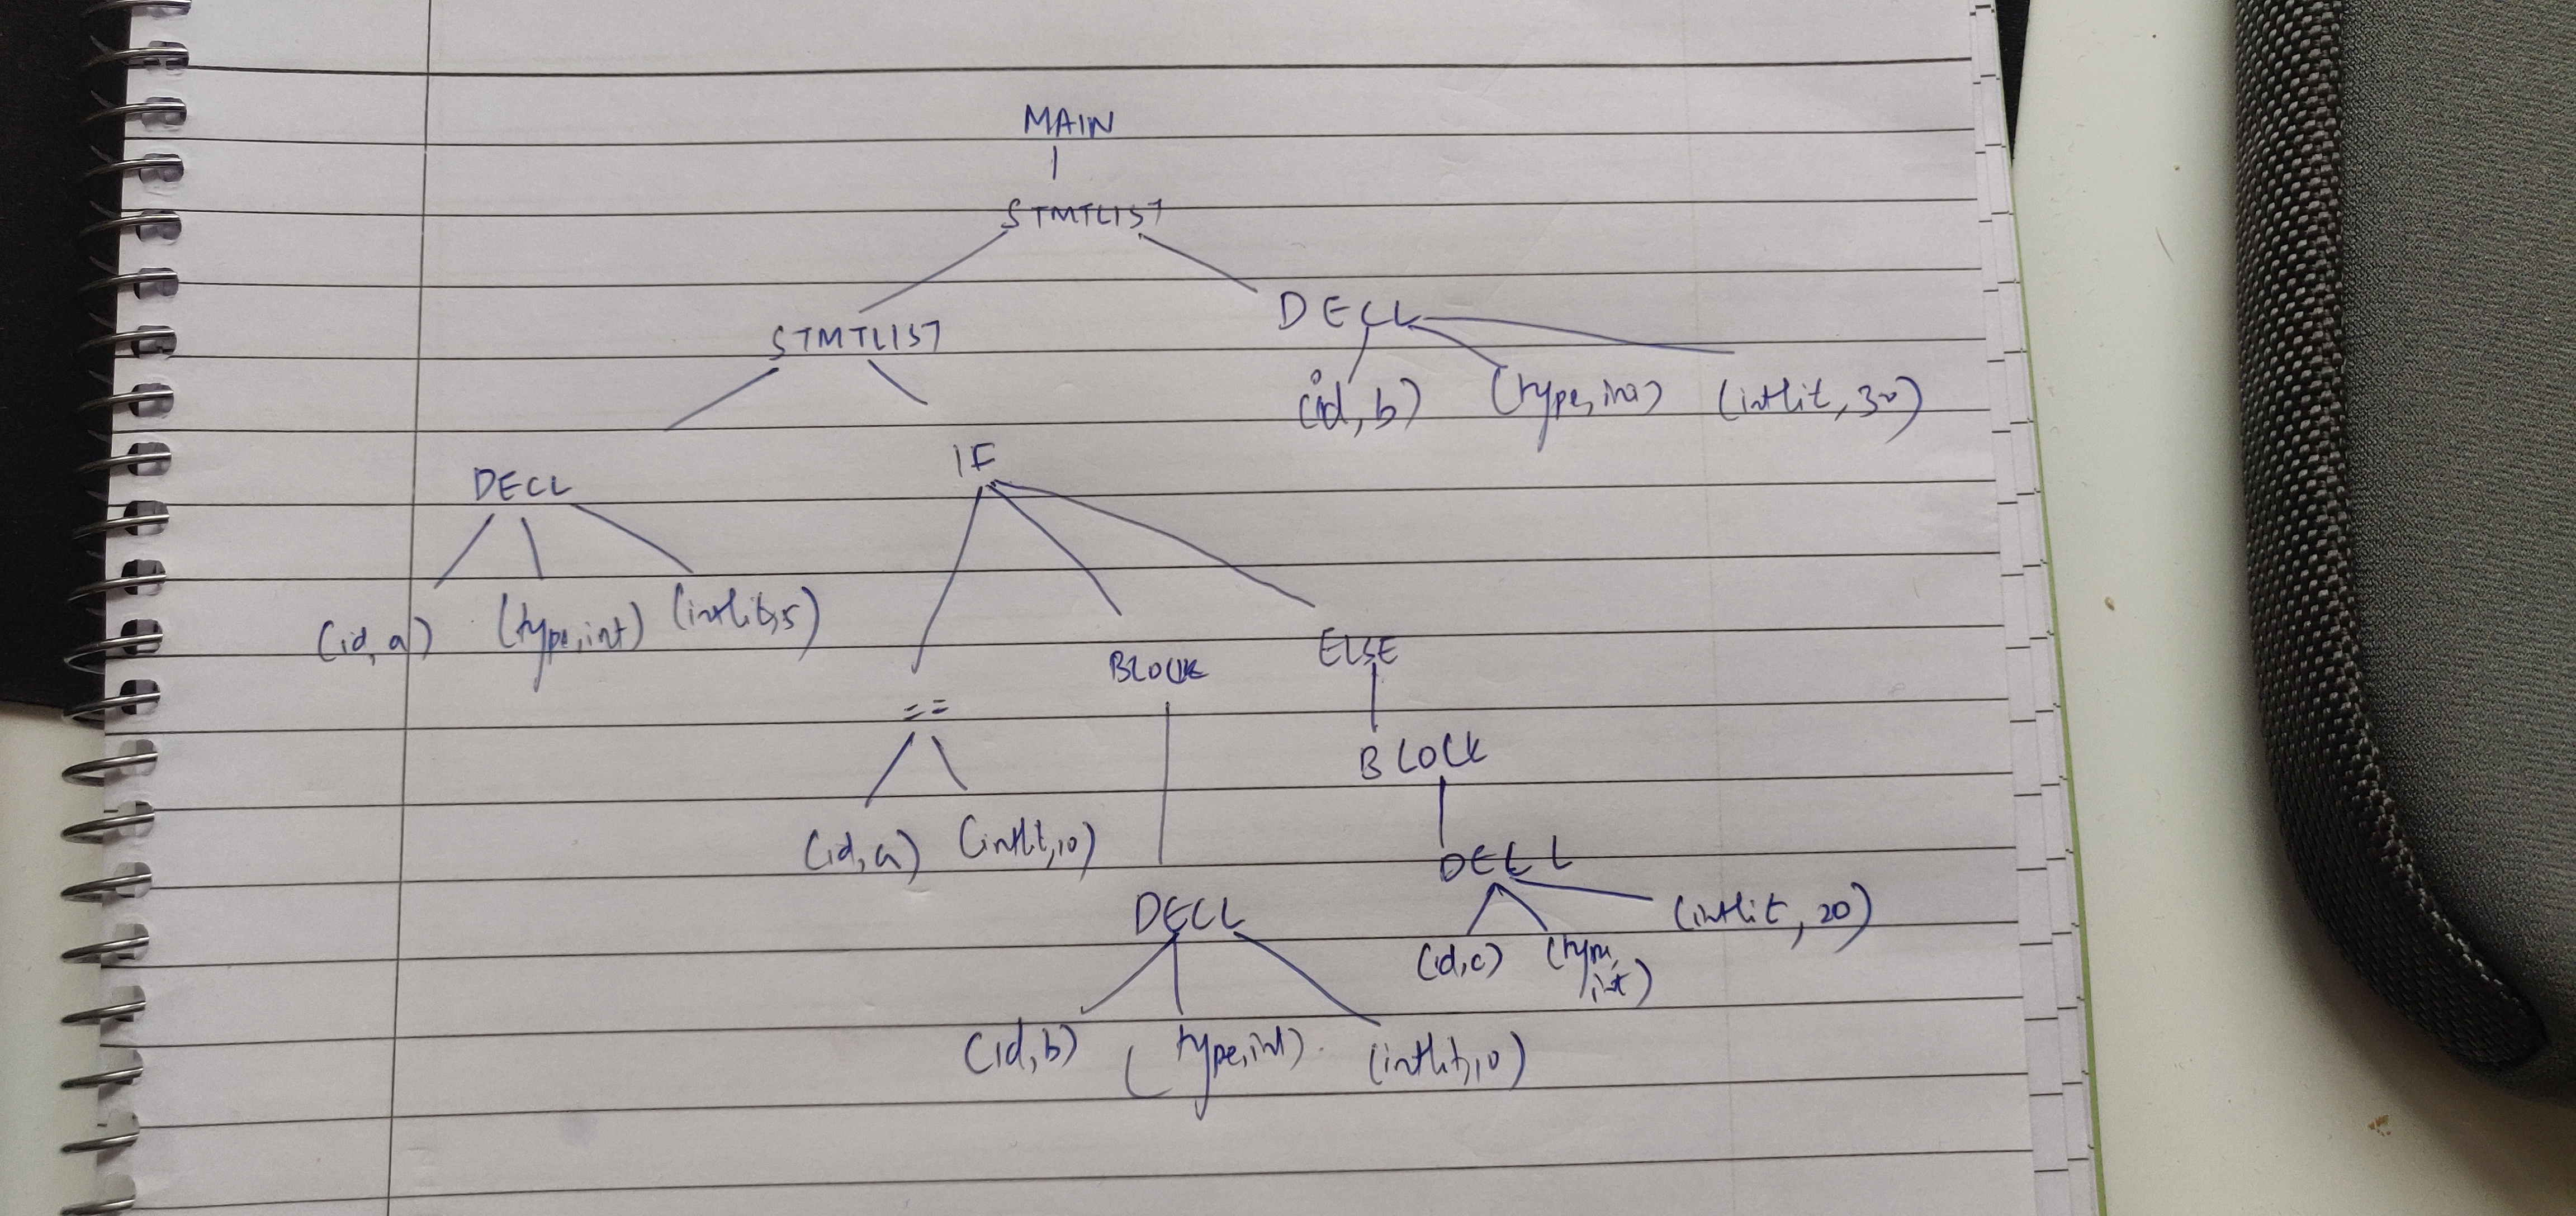 MAIN
STMTLIST
STMTLIST DECL
(id, b) (type, int) (intlit, 30)
DECL IF
(id, a) (type, int) (intlit, 5)
== BLOCK ELSE
BLOCK
(id, a) (intlit, 10)
DECL
DECL
(id, c) (type, int) (intlit, 20)
(id, b) (type, int) (intlit, 10)